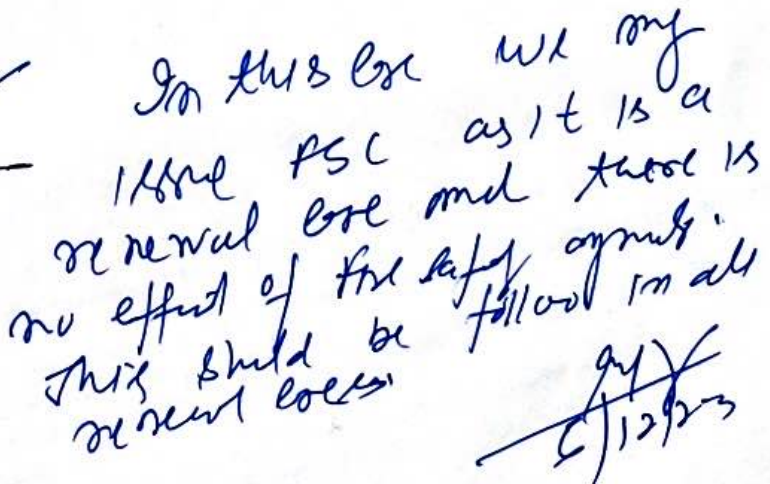 In this case we may
issue FSC as it is a
renewal case and there is
no effect of fire safety
This should be follow in all
renewal cases.
5/12/23